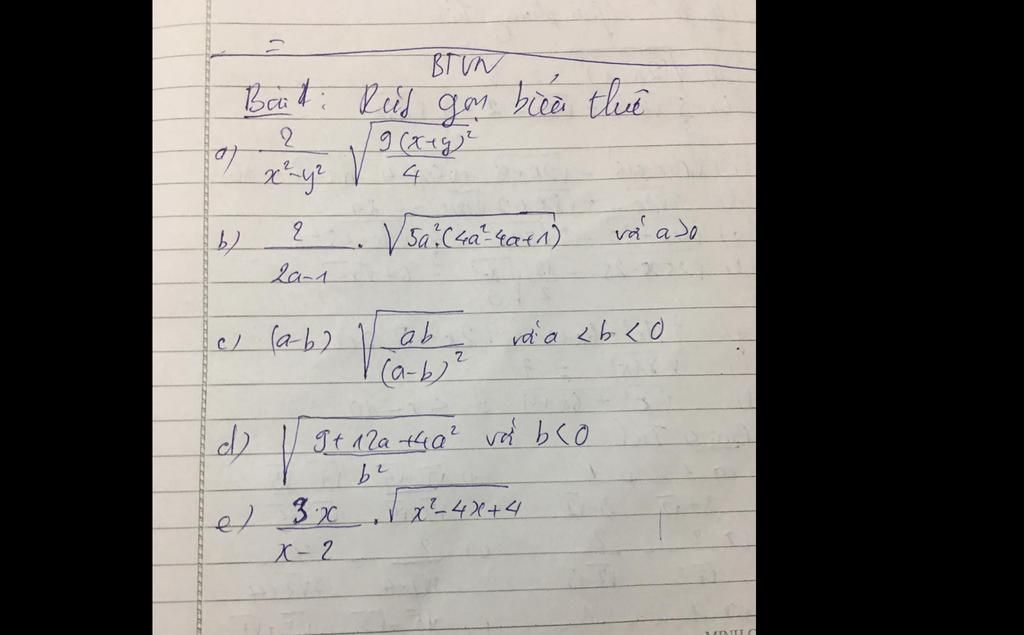 =
BTVN
Bài 1: Rút gọn biểu thức
a) 2/(x²-y²) √(9(x+y)²/4)
b) 2/(2a-1) . √(5a².(4a²-4a+1)) với a>0
c) (a-b) √(ab/(a-b)²) với a < b < 0
d) √((9+12a+4a²)/b²) với b<0
e) 3x/(x-2) . √(x²-4x+4)